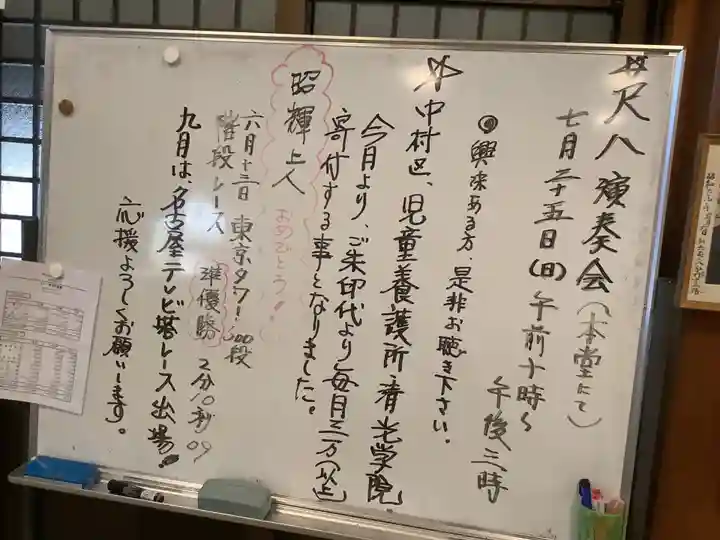 尺八演奏会(本堂にて)
七月二十五日(日)午前十時〜
午後三時
◎興味ある方、是非お聴き下さい。
中村区、児童養護所清光学院
今月より、ご朱印代より毎月三万(以上)
寄付する事となりました。
昭輝上人
おめでとう!
六月十三日 東京タワー600段
階段レース 準優勝 2分10秒09
九月は、名古屋テレビ塔レース出場!
応援よろしくお願いします。